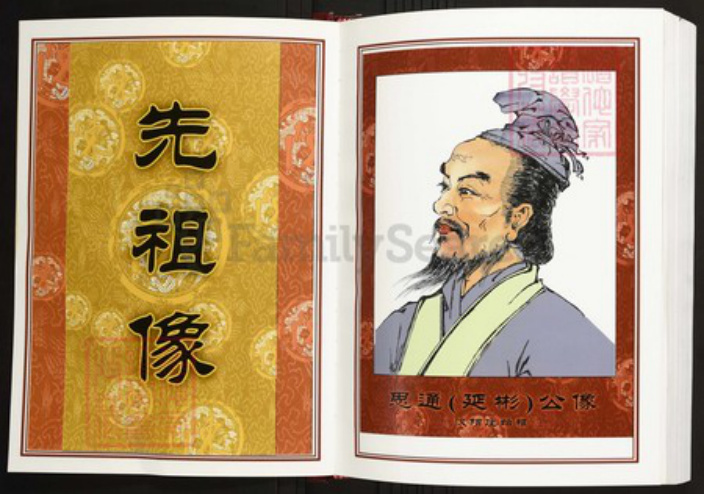 先
祖
像
思通(延彬)公像
FamilySe